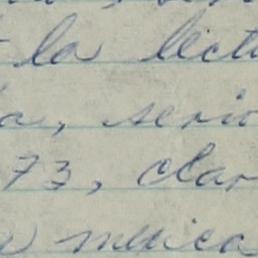 la lect
a, serio
73, clar
mexica